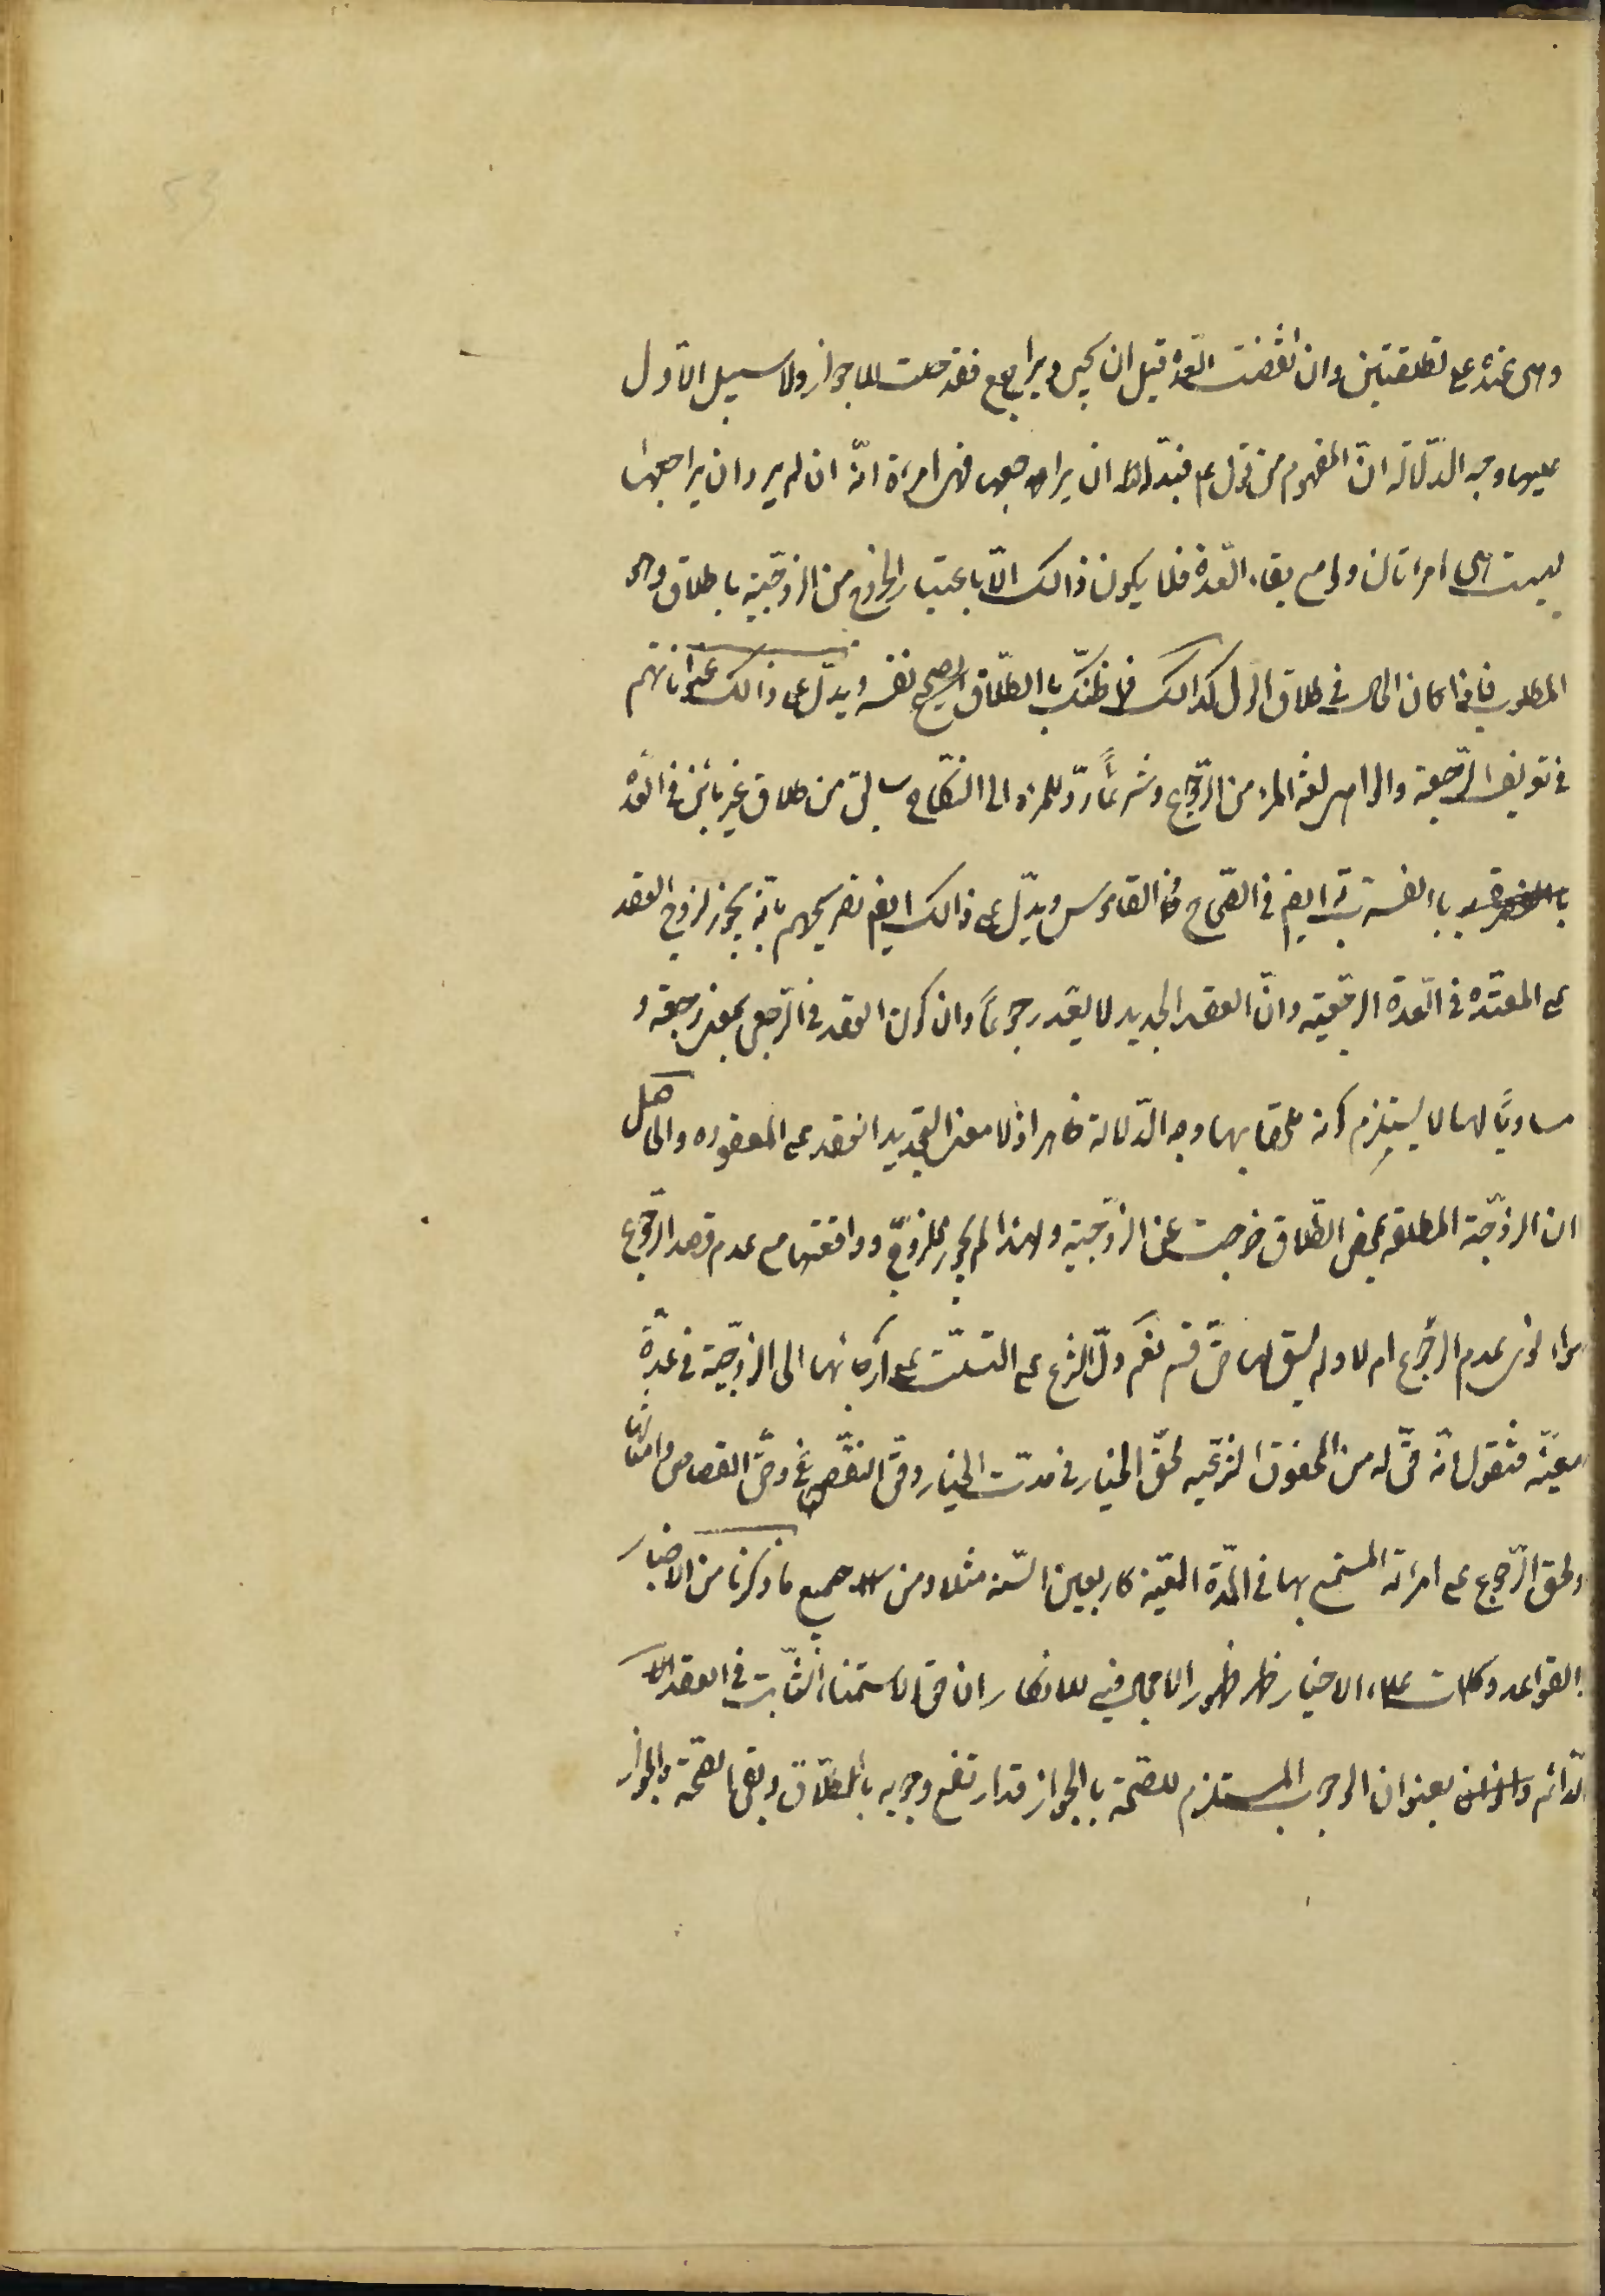 53
وهى عنده على تطليقتين وان انقضت العدّة قبل ان يراجع فقد حلت للاجواز ولا سبيل الاوّل
عليها وجه الدّلالة انّ المفهوم من قول ع فبدا له ان يراجعها فهى امرءة انّه ان لم يرد ان يراجعها
ليست هى امراتان ولو مع بقاء العدّة فلا يكون ذالك الّا باعتبار الخروج من الزوجيّة باطلاق وهو
المطلوب فاذا كان الحال فى طلاق الاول كذالك فما ظنّك باالطّلاق الصحيح نفسه ويدلّ على ذالك
فى تعريف الرّجعة لغة المرء من الرّجوع وشرعاً ردّ للمرء الى النّكاح من طلاق غير بائن فى العدّة
ايضم فى الصّحاح القاموس ويدلّ على ذالك ايضم تصريحهم بانّه يجوز لزوج العقد
على المعتدّة فى العدّة الرجعيّة وانّ العقد الجديد لا يعدّ رجوعاً وان كون العقد فى الرّجعى بمعنى رجعة و
مساوياً لها لا يستلزم كونه ملحقا بها وجه الدّلالة ظاهر اذ لا معنى لتجديد العقد على المعقوده والحاصل
ان الزوجّة المطلقة بمحض الطّلاق خرجت عن الزّوجيّة ولهذا لم يجز للزوج وواقعتها مع عدم قصد الرّجوع
سواء نوى عدم الرّجوع ام لا ولم يبق لها حقّ قسم نعم دلّ الشرع على الى الزوجيّة فى عدّة
معيّنه فنقول انّه حقّ له من الحقوق الشرعيه كحقّ الخيار فى مدّت الخيار وحقّ وحقّ القصاص وامثالها
ولحق الرّجوع على امرأته المستمتع بها فى المدّة المعيّنه كاربعين السّنة مثلا ومن جميع ما ذكرنا من الاخبار
والقواعد وكلمات علماء الاخيار ظهر ظهورا لا مجال فيه للانكار ان حق الاستمتاع الثّابت فى العقد
الدّائم بعنوان الوجوب المستلزم للصّحة باالجواز قد ارتفع وجوبه باالطّلاق وبقى الصّحّة والجواز